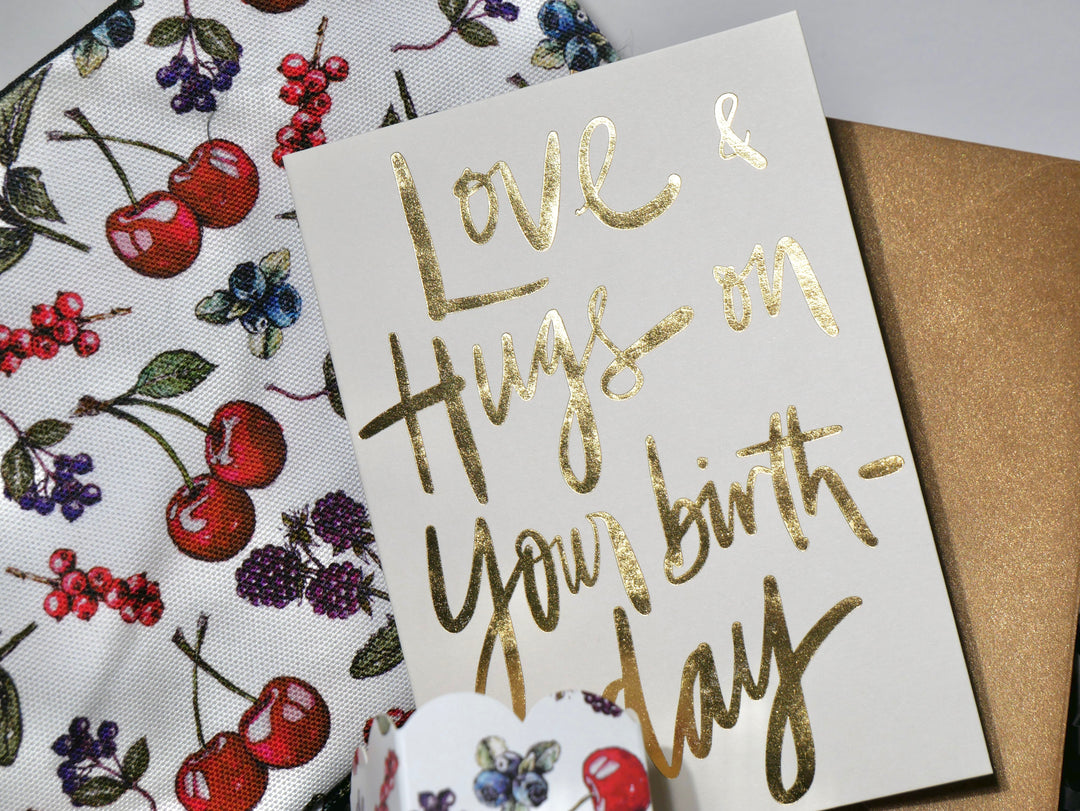 Love &
Hugs on
Your birth-
day